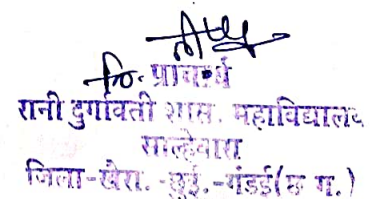 प्राचार्य
रानी दुर्गावती शास. महाविद्यालय
साल्हेवारा
जिला-खैरा.-छुई.-गंडई(छ ग.)